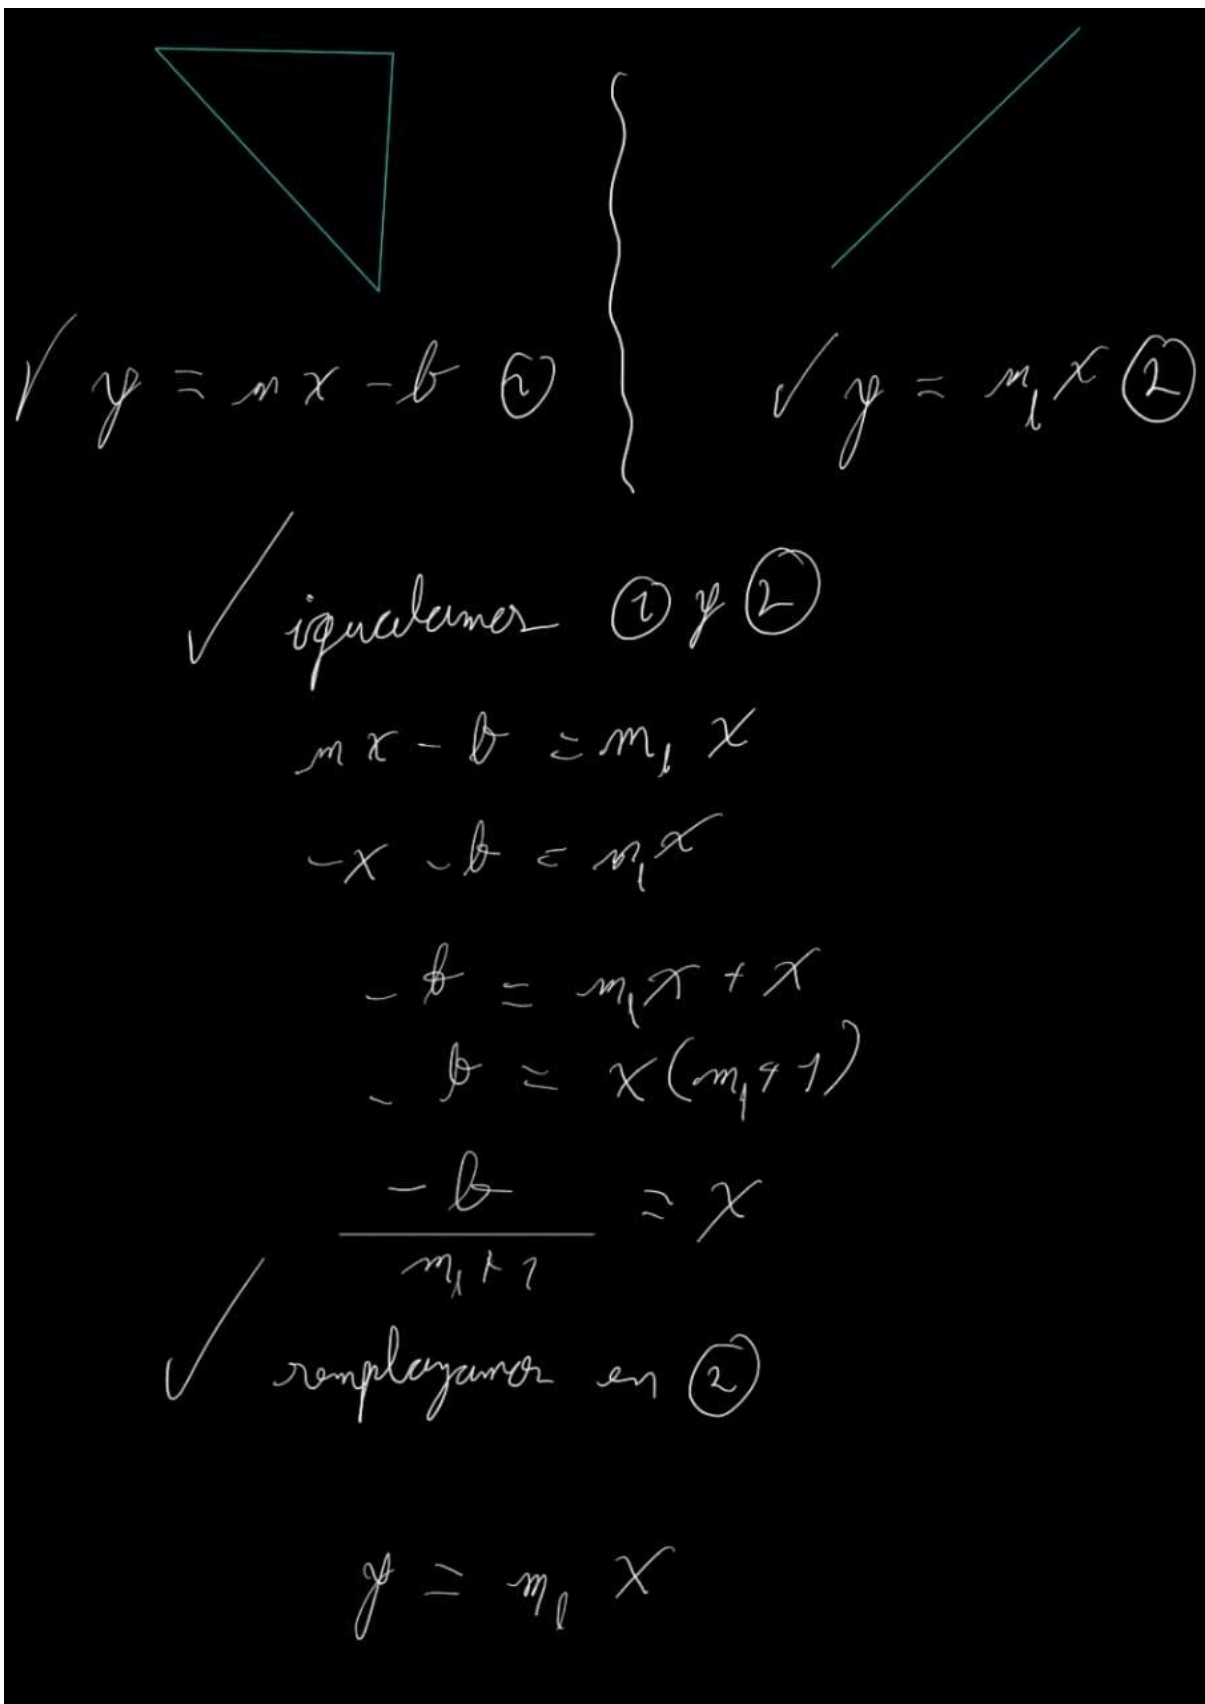 ✓ y = mx - b ①
✓ y = m₁x ②
✓ igualamos ① y ②
mx - b = m₁ x
-x - b = m₁x
- b = m₁x + x
- b = x(m₁+1)
- b / m₁+1 = x
✓ remplazamos en ②
y = m₁ x